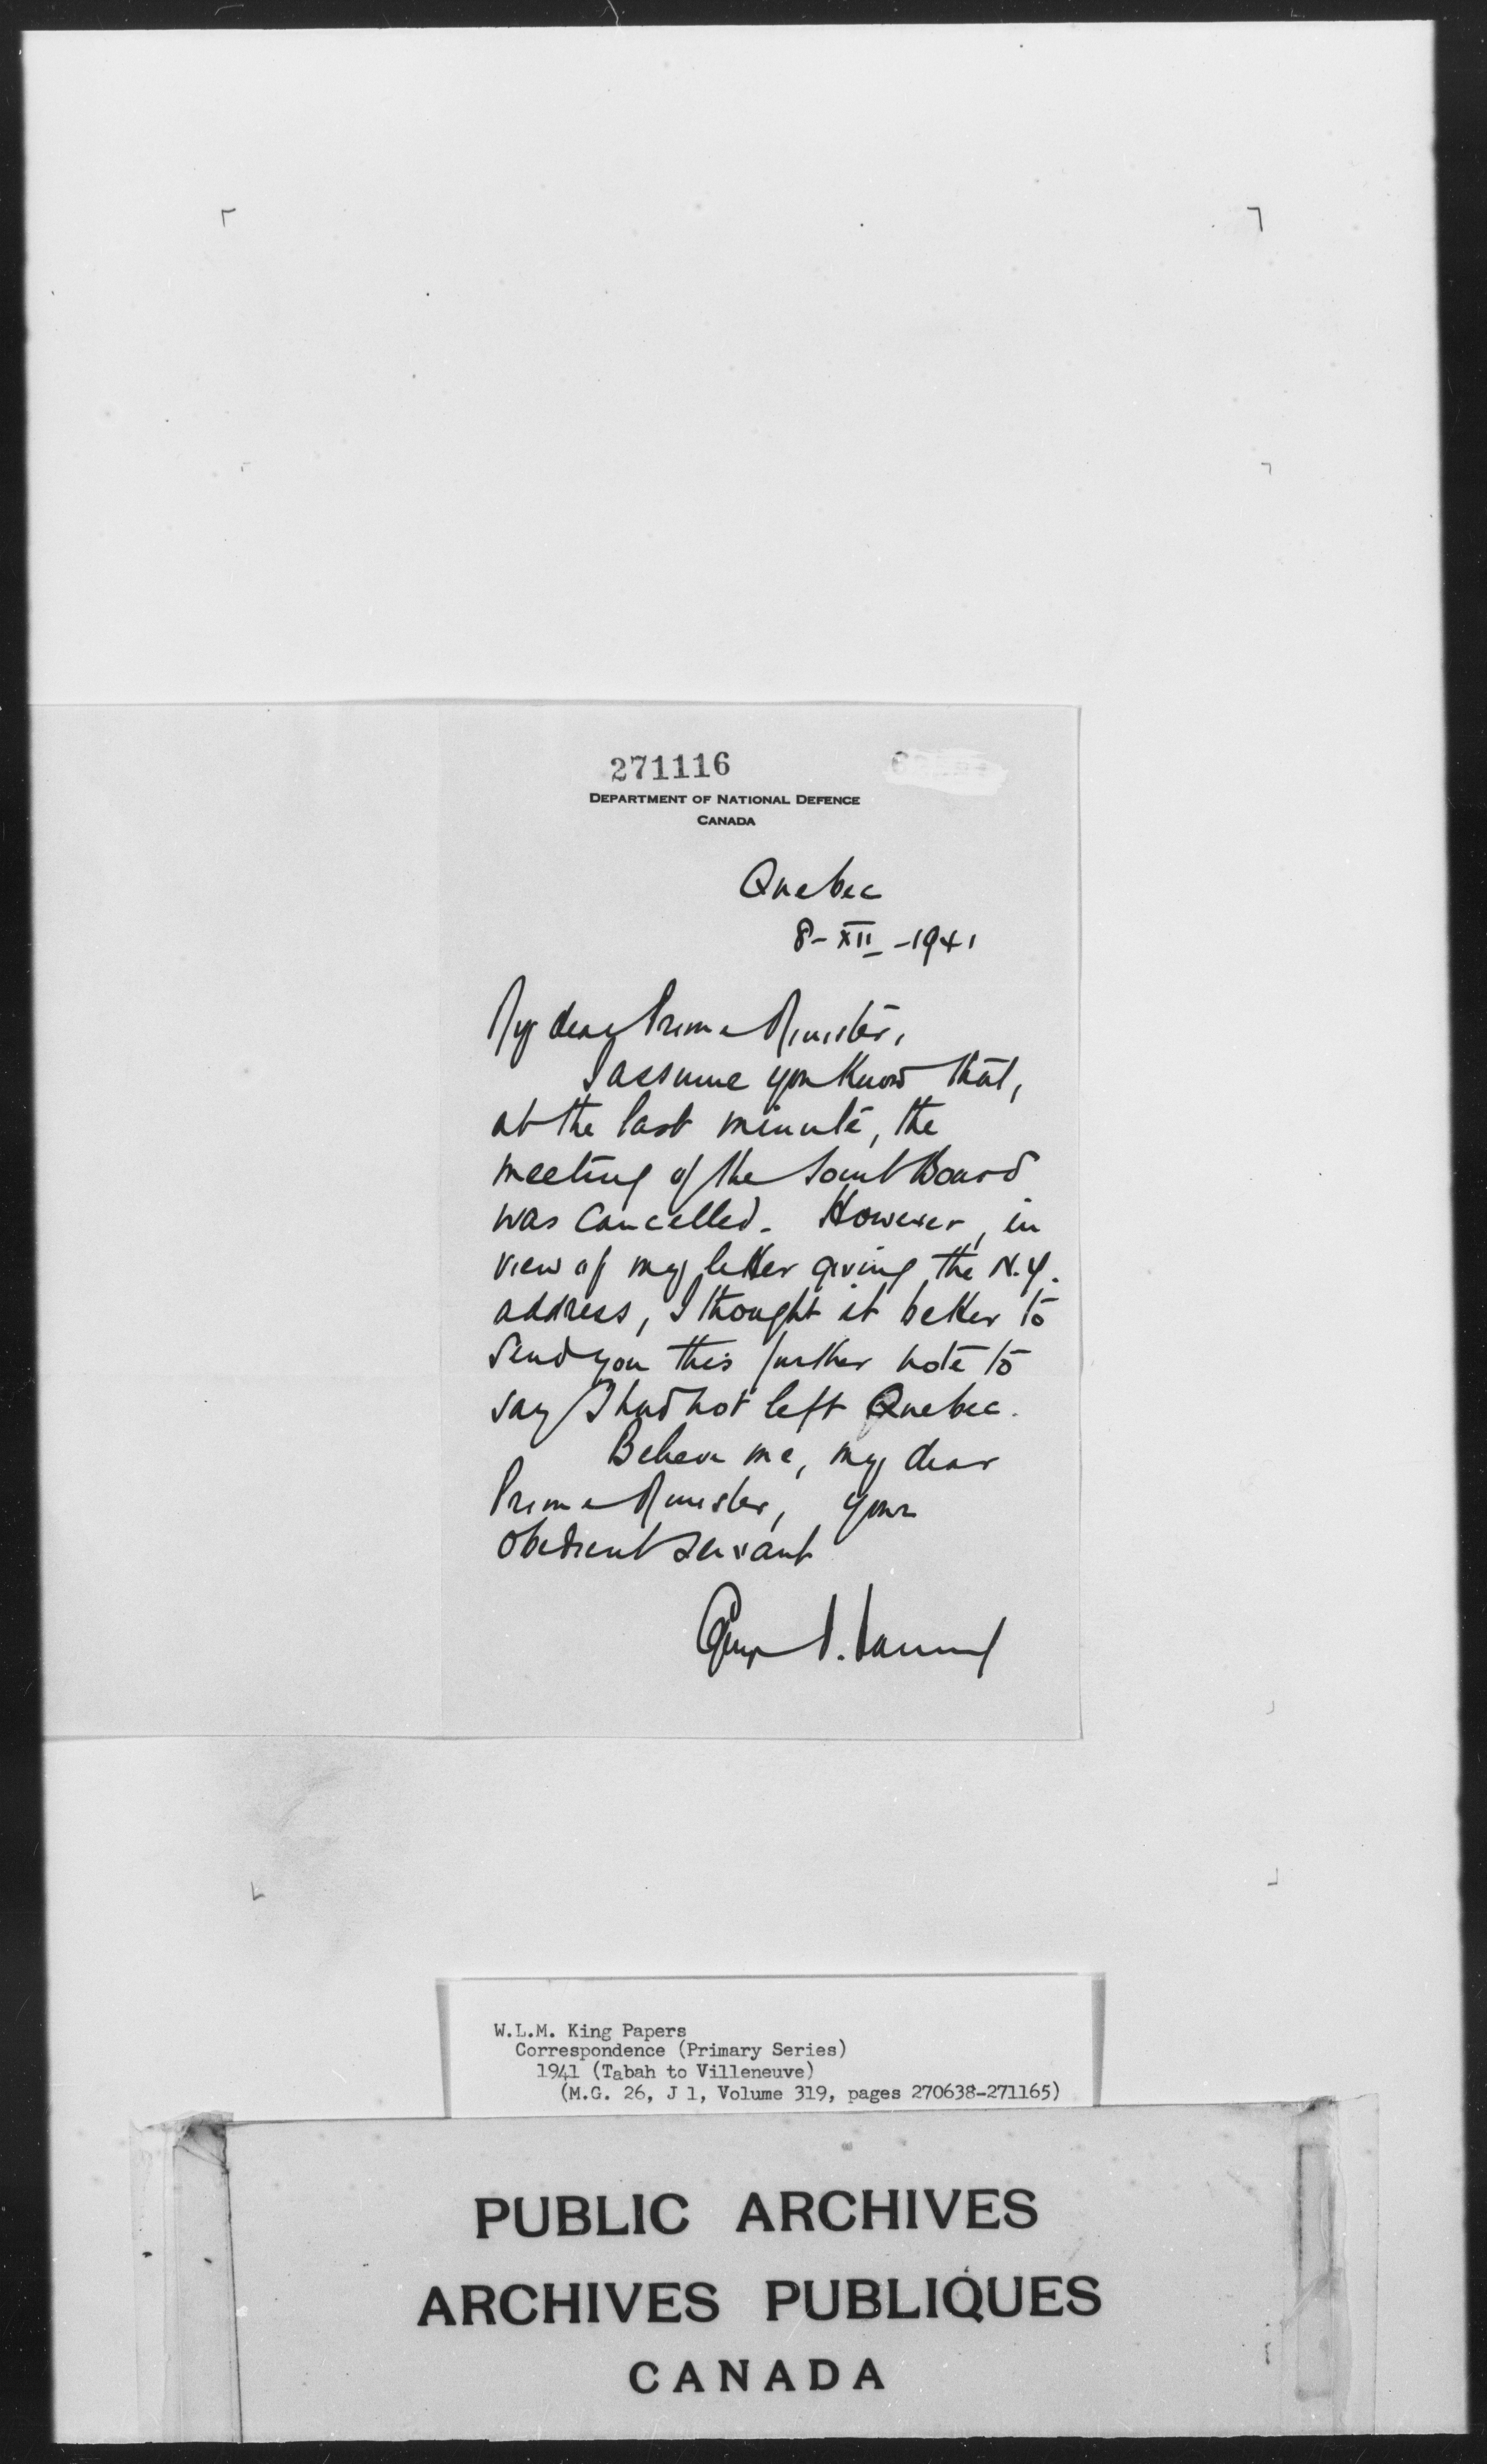 271116
DEPARTMENT OF NATIONAL DEFENCE
CANADA
Quebec
8-XII-1941
My dear Prime Minister,
I assume you know that,
at the last minute, the
meeting of the Joint Board
was cancelled. However, in
view of my letter giving the N.Y.
address, I thought it better to
send you this further note to
say I had not left Quebec.
Believe me, my dear
Prime Minister, your
obedient servant
W.L.M. King Papers
Correspondence (Primary Series)
1941 (Tabah to Villeneuve)
(M.G. 26, J 1, Volume 319, pages 270638-271165)
PUBLIC ARCHIVES
ARCHIVES PUBLIQUES
CANADA